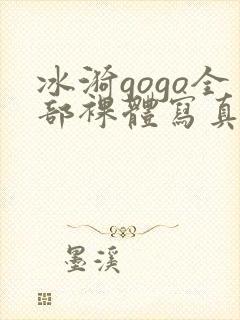 冰漪gogo全
部裸體寫真
墨溪